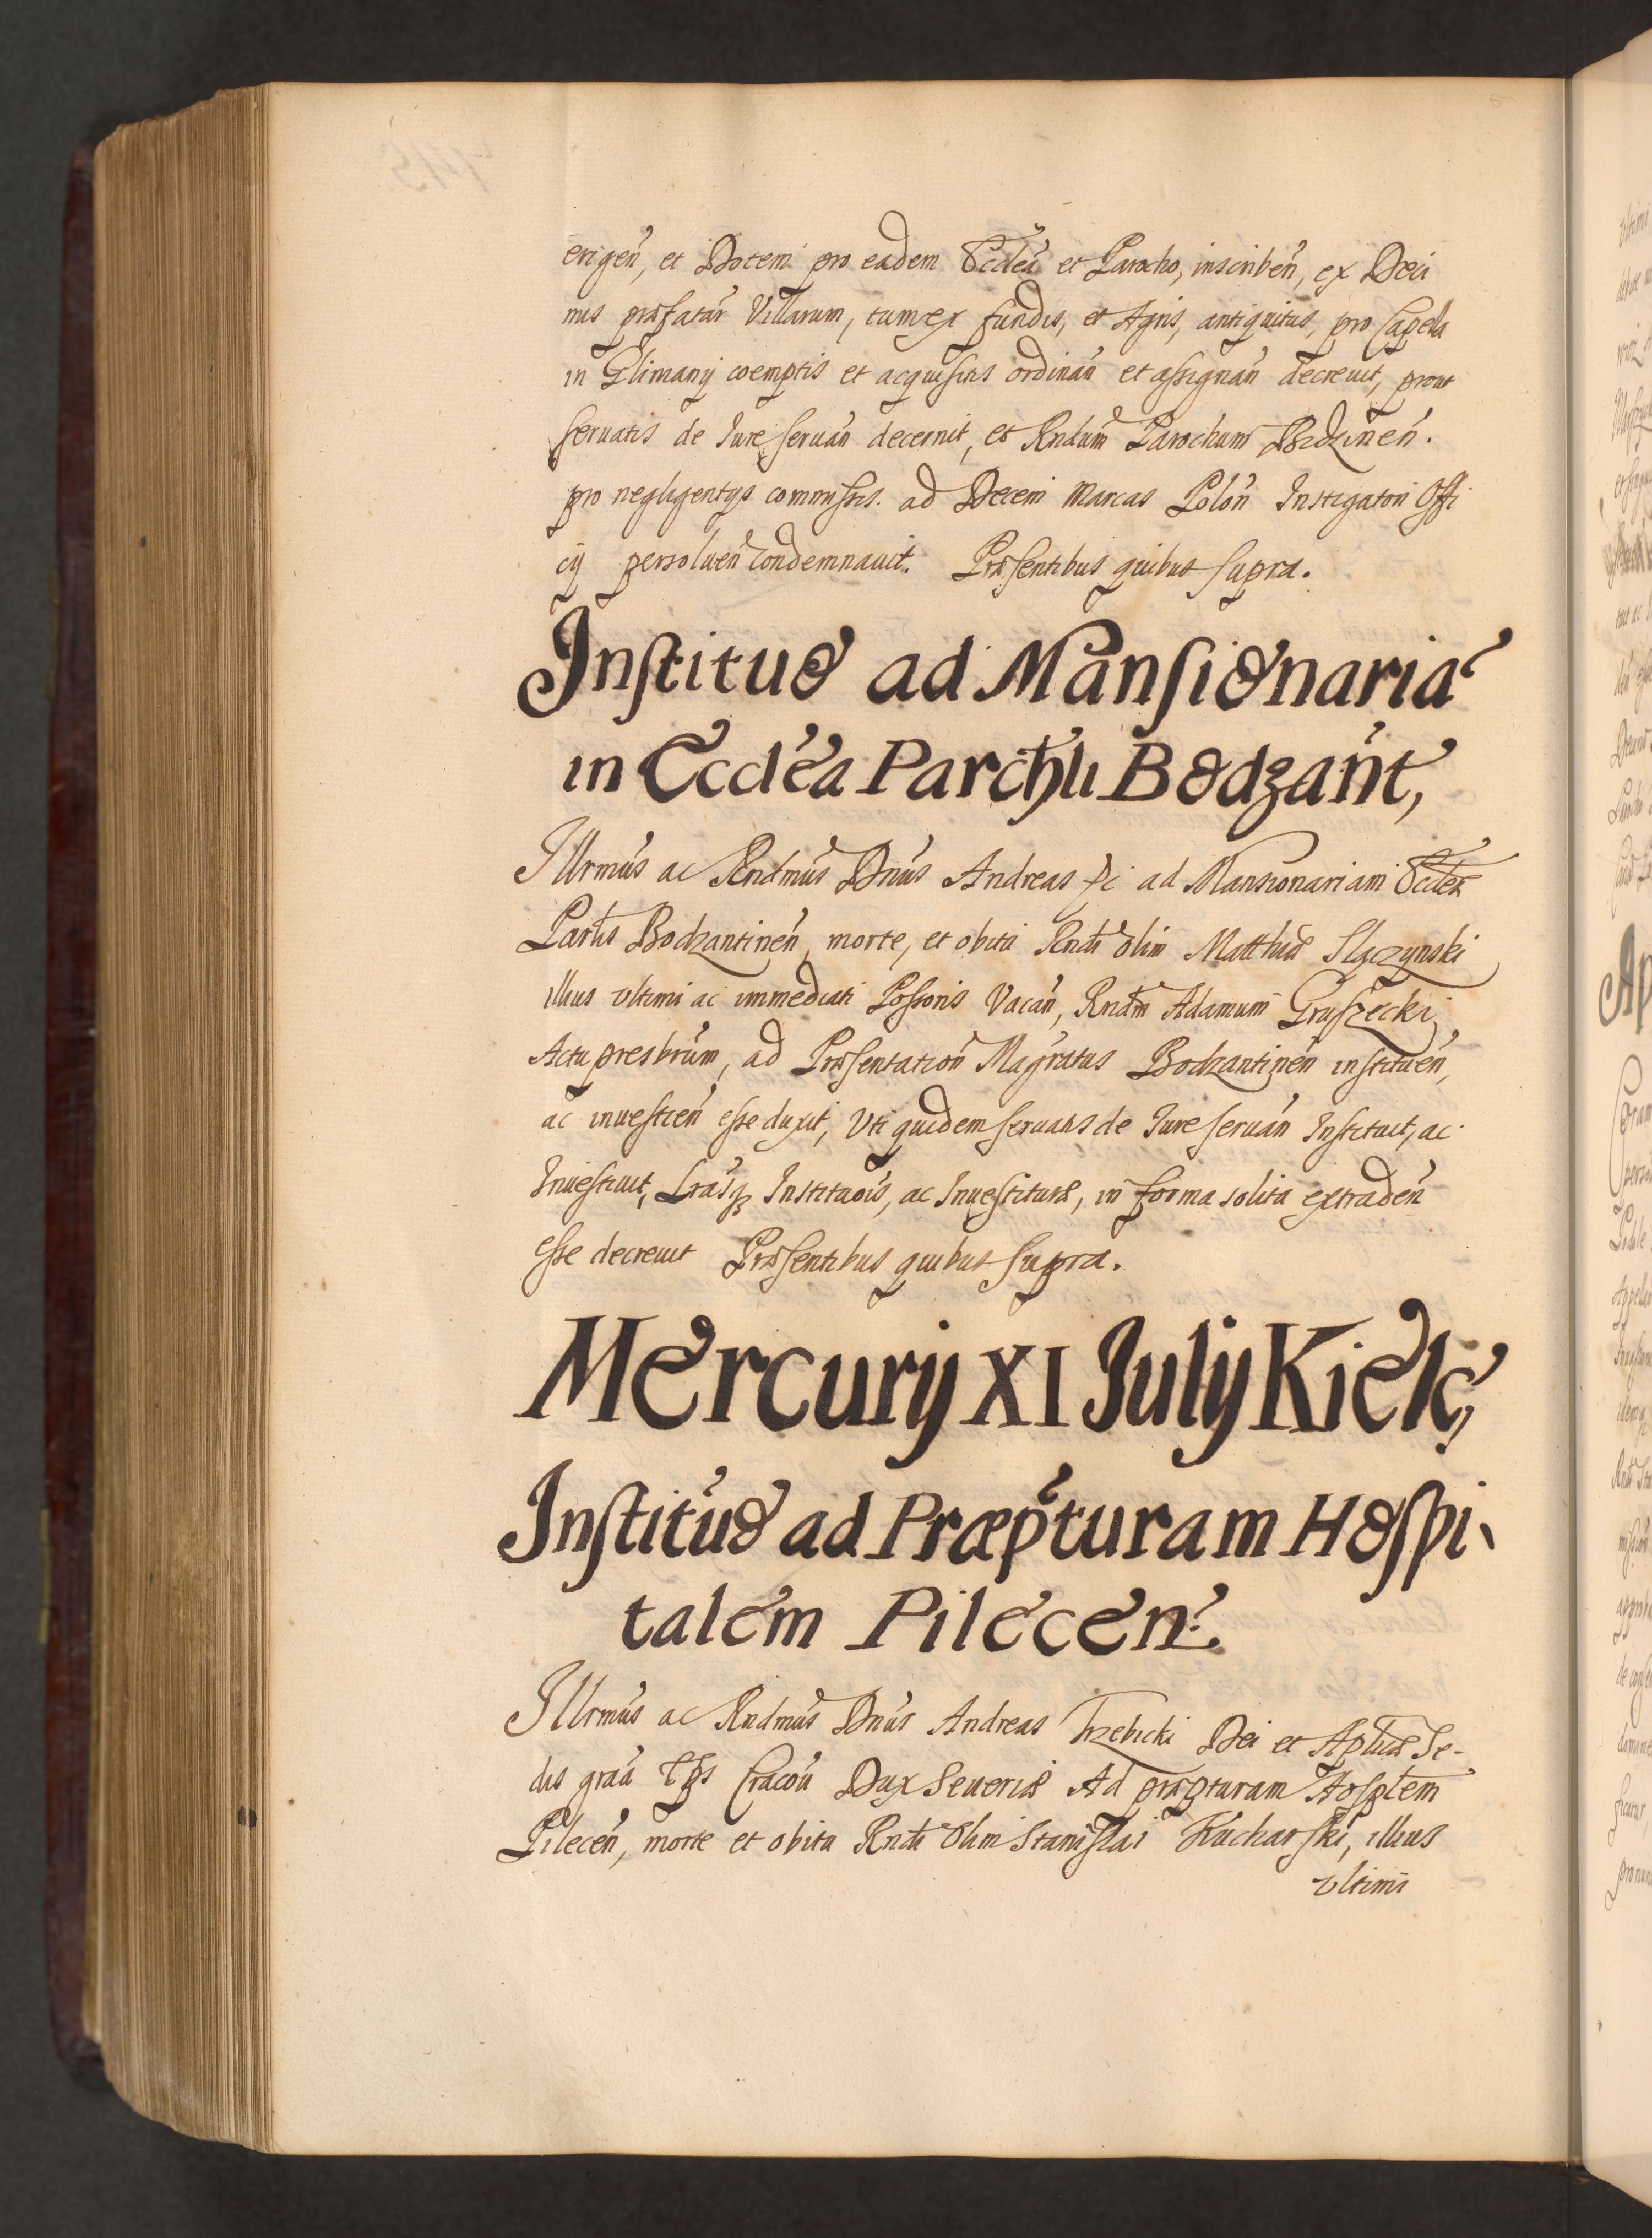 erigeń, et Dotem pro eadem Eccleã et Parocho, inscribeń, ex Deci
mis præfatar Villarum, tum ex fundis, et Agris, antiquitus, pro Capella
in Glimany coemptis et acquisitis ordinań et assignań decreuit, prout
seruatis de Jure seruań decernit, et Rndum Parochum Bidzineń.
pro negligentijs commissis. ad Decem Marcas Poloń Instigatori Offi
cij persolueń condemnauit. Præsentibus quibus supra.
Institu͠o ad Mansionaria͠
in Ecclea Parchli Bodzant,
Illrmus ac Rndmus Dnus Andreas &c ad Mansionariam Eccleæ
Parlis Bodzantineń, morte, et obitu Rndi olim Matthiæ Slączynski
illius vltimi ac immediati Possoris Vacań, Rndm Adamum Gruszecki
Actu presbrum, ad Præsentationẽ Magratus Bodzantineń institueń,
ac inuestień esse duxit, Vti quidem seruatis de Jure seruań Instituit, ac
Inuestiuit, Lrasq; Instituois, ac Inuestituræ, in forma solita extradeń
esse decreuit Præsentibus quibus supra.
Mercurij XI Julij Kielc,
Institu͠o ad Præpturam Hospi
talem Pilecen.
Illrmus ac Rndmus Dnus Andreas Trzebicki Dei et Aplicæ Se-
dis graã Eps Cracou Dux Seueriæ Ad præpturam Hosplem
Pileceń, morte et obitu Rndi Olim Stanislai Kucharski, illius
vltimi